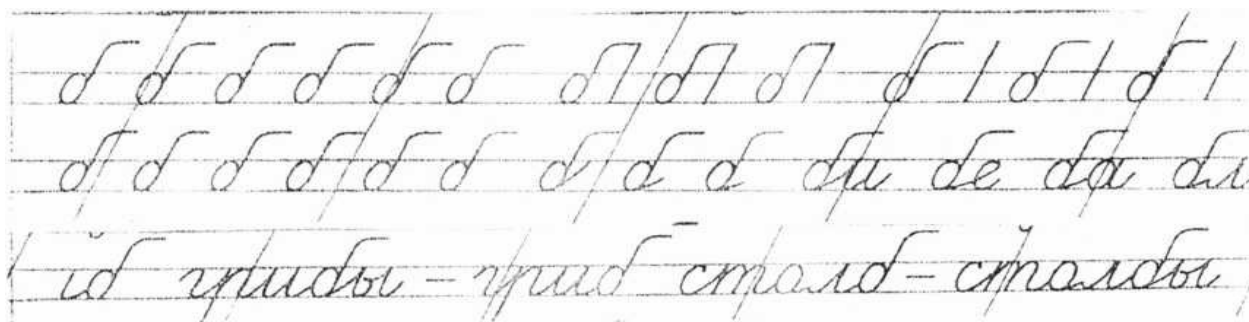 б б б б б б б б б б б б
б б б б б б б б б би бе ба бл
иб грибы – гриб столб – столбы